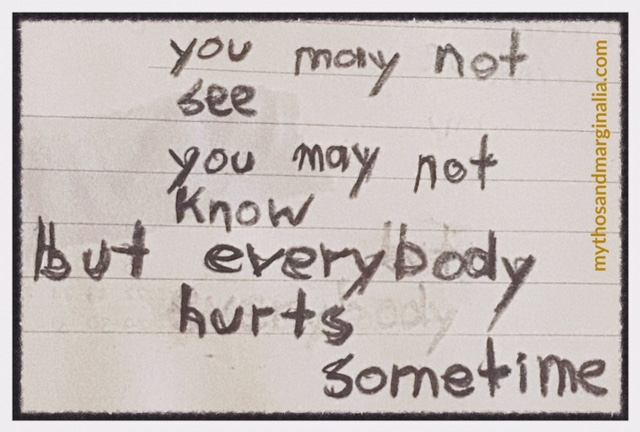 you may not
see
you may not
know
but everybody
hurts
sometime
mythosandmarginalia.com